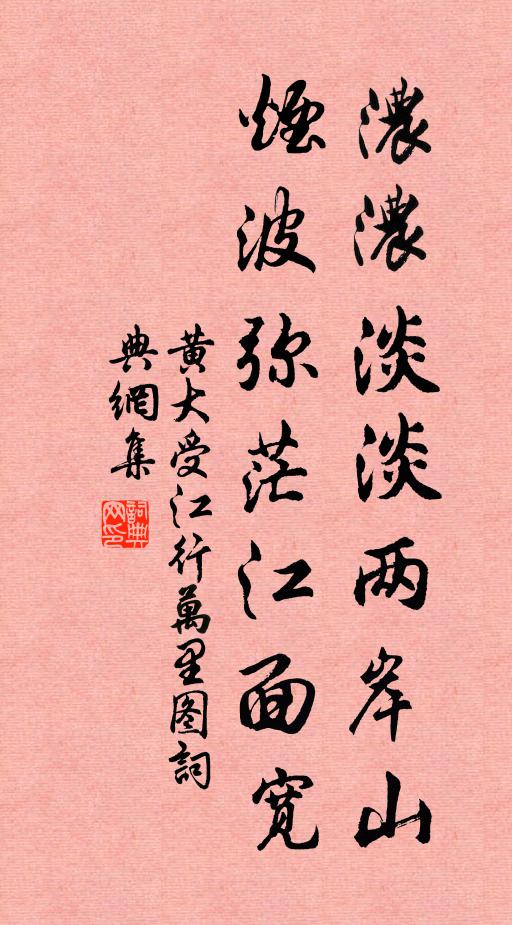 濃濃淡淡两岸山
煙波弥茫江面寬
黃大受江行萬里图詞
典網集
詞典网印